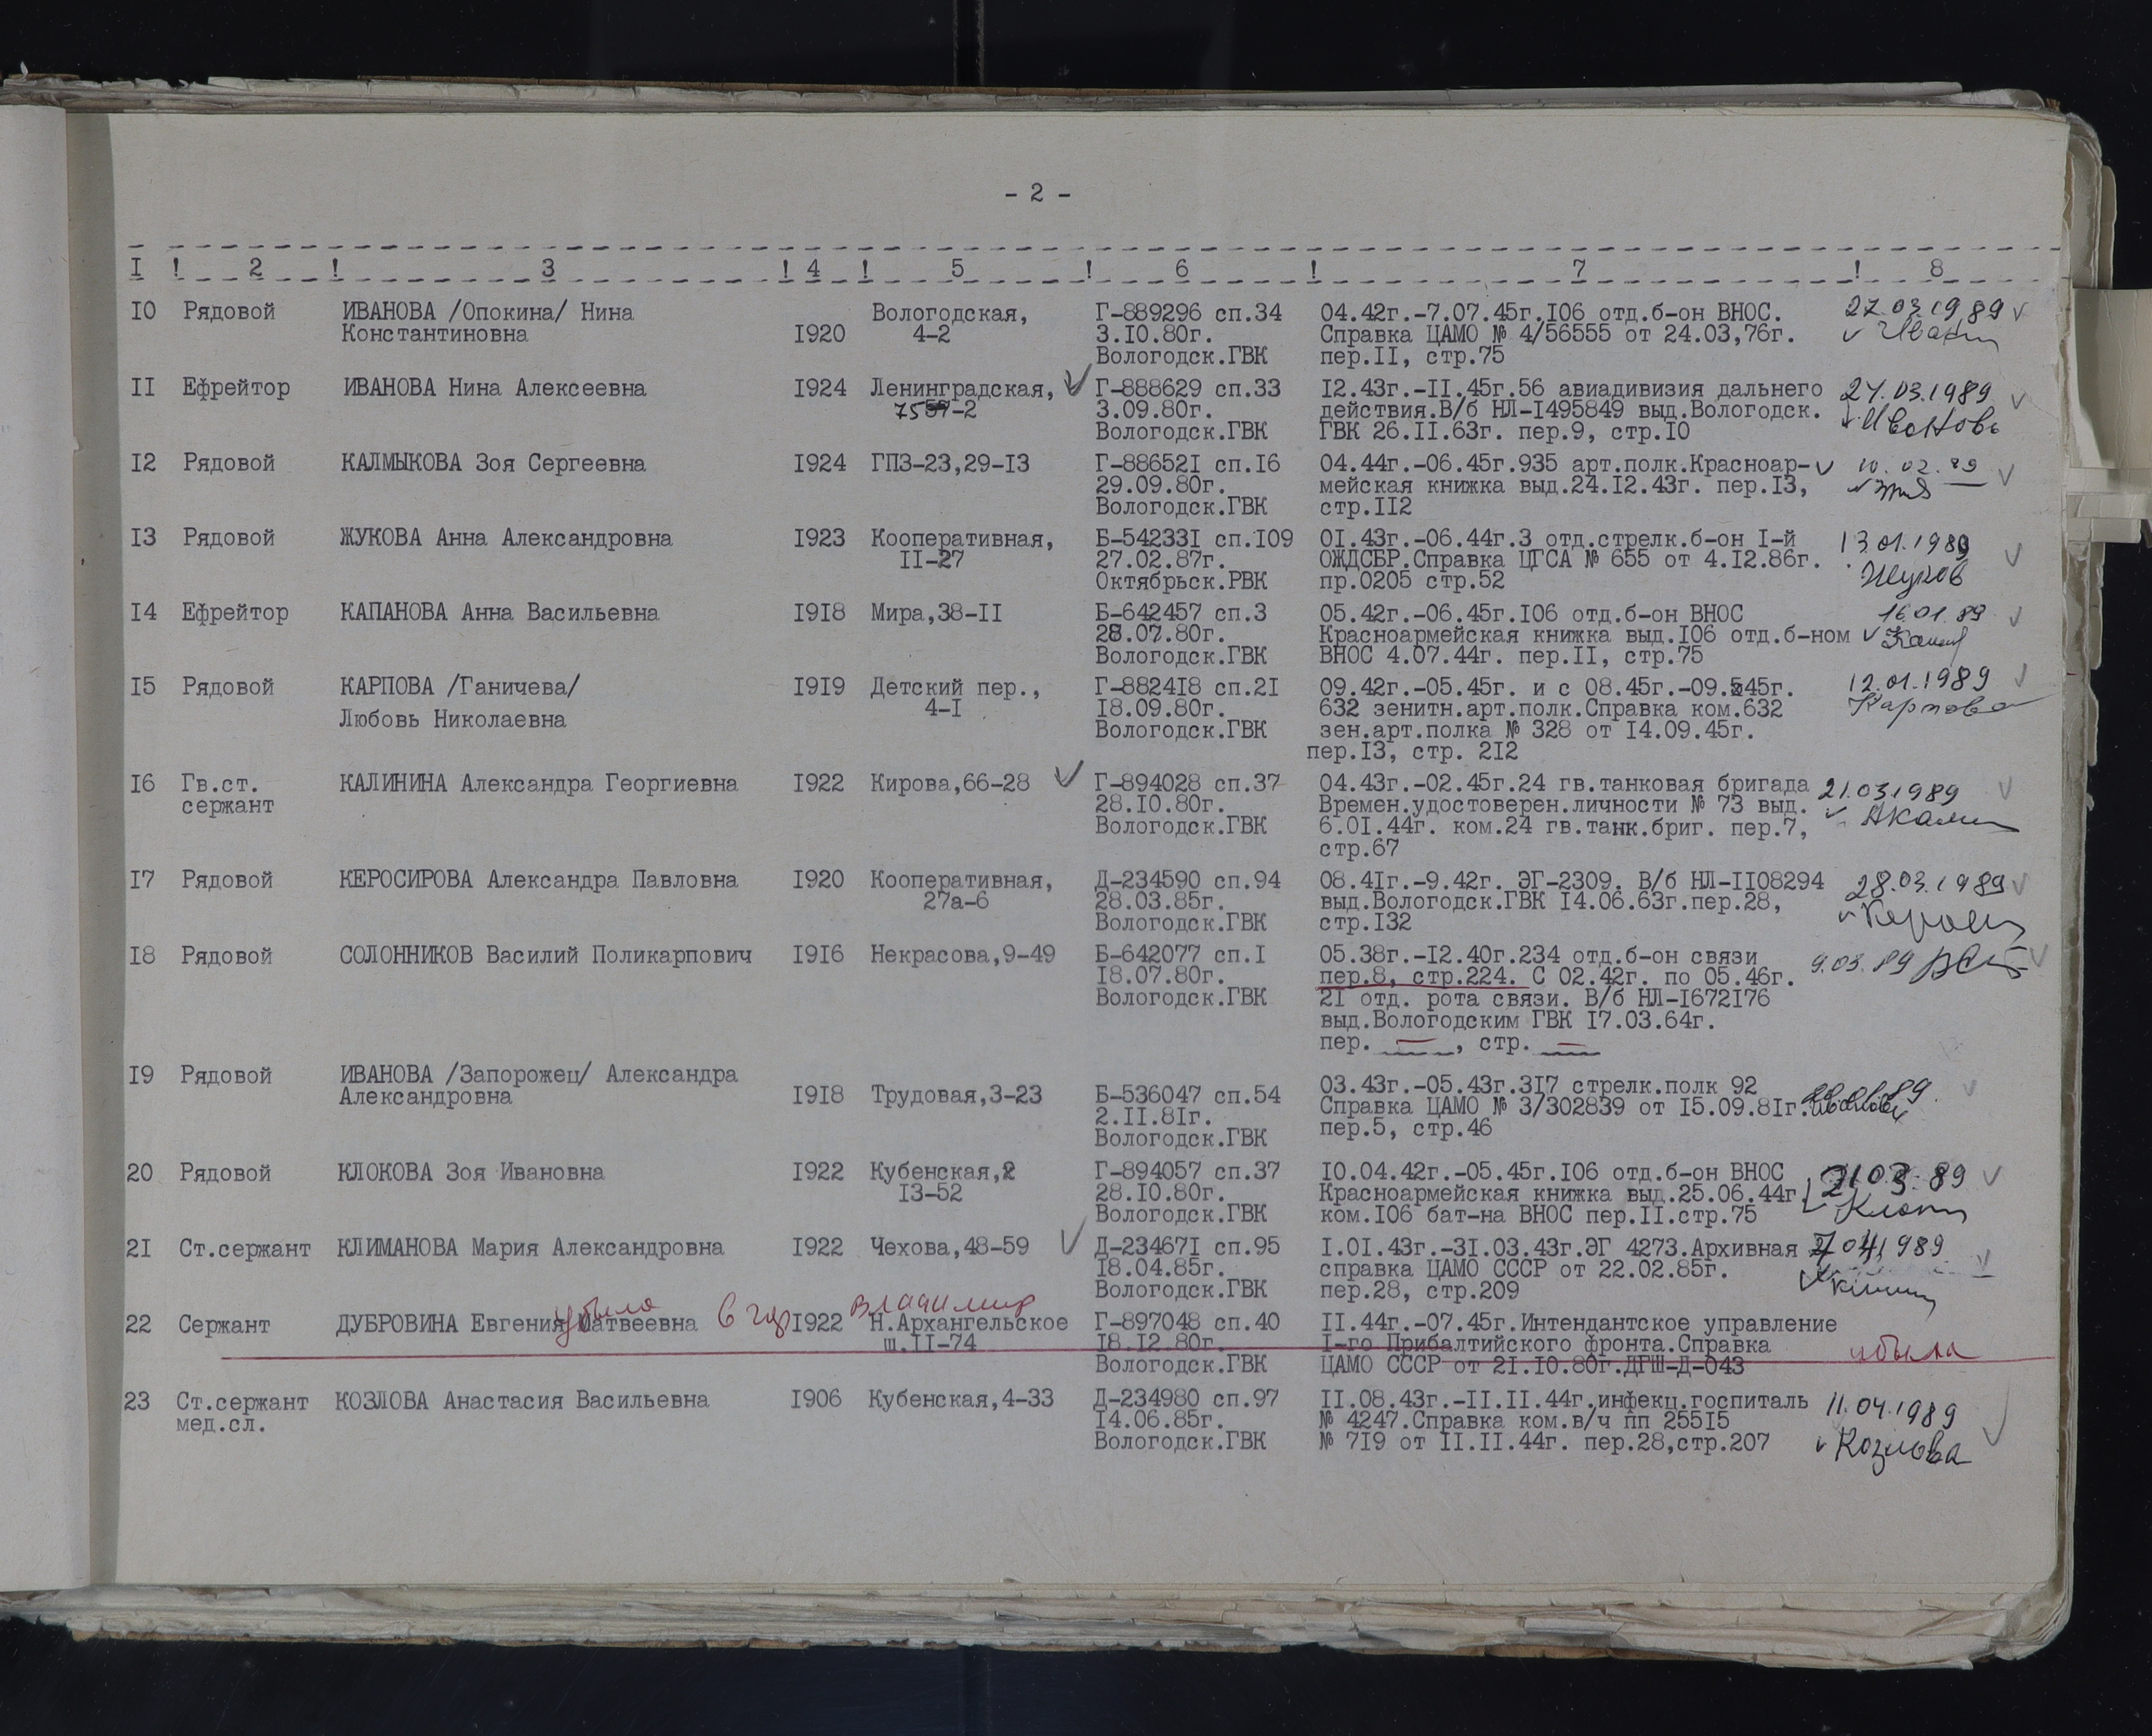 - 2 -
I ! 2 ! 3 ! 4 ! 5 ! 6 ! 7 ! 8
10 Рядовой ИВАНОВА /Опокина/ Нина Вологодская, Г-889296 сп.34 04.42г.-7.07.45г.106 отд.б-он ВНОС. 27.03.1989
Константиновна 1920 4-2 3.10.80г. Справка ЦАМО № 4/56555 от 24.03,76г.
Вологодск.ГВК пер.II, стр.75
II Ефрейтор ИВАНОВА Нина Алексеевна 1924 Ленинградская, Г-888629 сп.33 12.43г.-II.45г.56 авиадивизия дальнего 27.03.1989
-2 3.09.80г. действия.В/б НЛ-1495849 выд.Вологодск. Иванова
Вологодск.ГВК ГВК 26.II.63г. пер.9, стр.10
12 Рядовой КАЛМЫКОВА Зоя Сергеевна 1924 ГПЗ-23,29-13 Г-886521 сп.16 04.44г.-06.45г.935 арт.полк.Красноар- 10.02.89
29.09.80г. мейская книжка выд.24.12.43г. пер.13,
Вологодск.ГВК стр.112
13 Рядовой ЖУКОВА Анна Александровна 1923 Кооперативная, Б-542331 сп.109 01.43г.-06.44г.3 отд.стрелк.б-он I-й 13.01.1989
II-27 27.02.87г. ОЖДСБР.Справка ЦГСА № 655 от 4.12.86г.
Октябрьск.РВК пр.0205 стр.52 Жуков
14 Ефрейтор КАПАНОВА Анна Васильевна 1918 Мира,38-II Б-642457 сп.3 05.42г.-06.45г.106 отд.б-он ВНОС 16.01.89
28.07.80г. Красноармейская книжка выд.106 отд.б-ном
Вологодск.ГВК ВНОС 4.07.44г. пер.II, стр.75
15 Рядовой КАРПОВА /Ганичева/ 1919 Детский пер., Г-882418 сп.21 09.42г.-05.45г. и с 08.45г.-09.45г. 12.01.1989
Любовь Николаевна 4-I 18.09.80г. 632 зенитн.арт.полк.Справка ком.632 Карпова
Вологодск.ГВК зен.арт.полка № 328 от 14.09.45г.
пер.13, стр. 212
16 Гв.ст. КАЛИНИНА Александра Георгиевна 1922 Кирова,66-28 Г-894028 сп.37 04.43г.-02.45г.24 гв.танковая бригада 21.03.1989
сержант 28.10.80г. Времен.удостоверен.личности № 73 выд.
Вологодск.ГВК 6.01.44г. ком.24 гв.танк.бриг. пер.7,
стр.67
17 Рядовой КЕРОСИРОВА Александра Павловна 1920 Кооперативная, Д-234590 сп.94 08.41г.-9.42г. ЭГ-2309. В/б НЛ-1108294 28.03.1989
27а-6 28.03.85г. выд.Вологодск.ГВК 14.06.63г.пер.28,
Вологодск.ГВК стр.132
18 Рядовой СОЛОННИКОВ Василий Поликарпович 1916 Некрасова,9-49 Б-642077 сп.I 05.38г.-12.40г.234 отд.б-он связи 9.03.89
18.07.80г. пер.8, стр.224. С 02.42г. по 05.46г.
Вологодск.ГВК 21 отд. рота связи. В/б НЛ-1672176
выд.Вологодским ГВК 17.03.64г.
пер. ___, стр. ___
19 Рядовой ИВАНОВА /Запорожец/ Александра 03.43г.-05.43г.317 стрелк.полк 92
Александровна 1918 Трудовая,3-23 Б-536047 сп.54 Справка ЦАМО № 3/302839 от 15.09.81г.
2.II.81г. пер.5, стр.46
Вологодск.ГВК
20 Рядовой КЛОКОВА Зоя Ивановна 1922 Кубенская, Г-894057 сп.37 10.04.42г.-05.45г.106 отд.б-он ВНОС 21 03 89
13-52 28.10.80г. Красноармейская книжка выд.25.06.44г.
Вологодск.ГВК ком.106 бат-на ВНОС пер.II.стр.75
21 Ст.сержант КЛИМАНОВА Мария Александровна 1922 Чехова,48-59 Д-234671 сп.95 I.01.43г.-31.03.43г.ЭГ 4273.Архивная 7 04 1989
18.04.85г. справка ЦАМО СССР от 22.02.85г.
Вологодск.ГВК пер.28, стр.209
убыла в гор Владимир
22 Сержант ДУБРОВИНА Евгения Матвеевна 1922 Н.Архангельское Г-897048 сп.40 II.44г.-07.45г.Интендантское управление
ш.II-74 18.12.80г. I-го Прибалтийского фронта.Справка убыла
Вологодск.ГВК ЦАМО СССР от 21.10.80г.ДГШ-Д-043
23 Ст.сержант КОЗЛОВА Анастасия Васильевна 1906 Кубенская,4-33 Д-234980 сп.97 II.08.43г.-II.II.44г.инфекц.госпиталь 11.04.1989
мед.сл. 14.06.85г. № 4247.Справка ком.в/ч пп 25515
Вологодск.ГВК № 719 от II.II.44г. пер.28,стр.207 Козлова